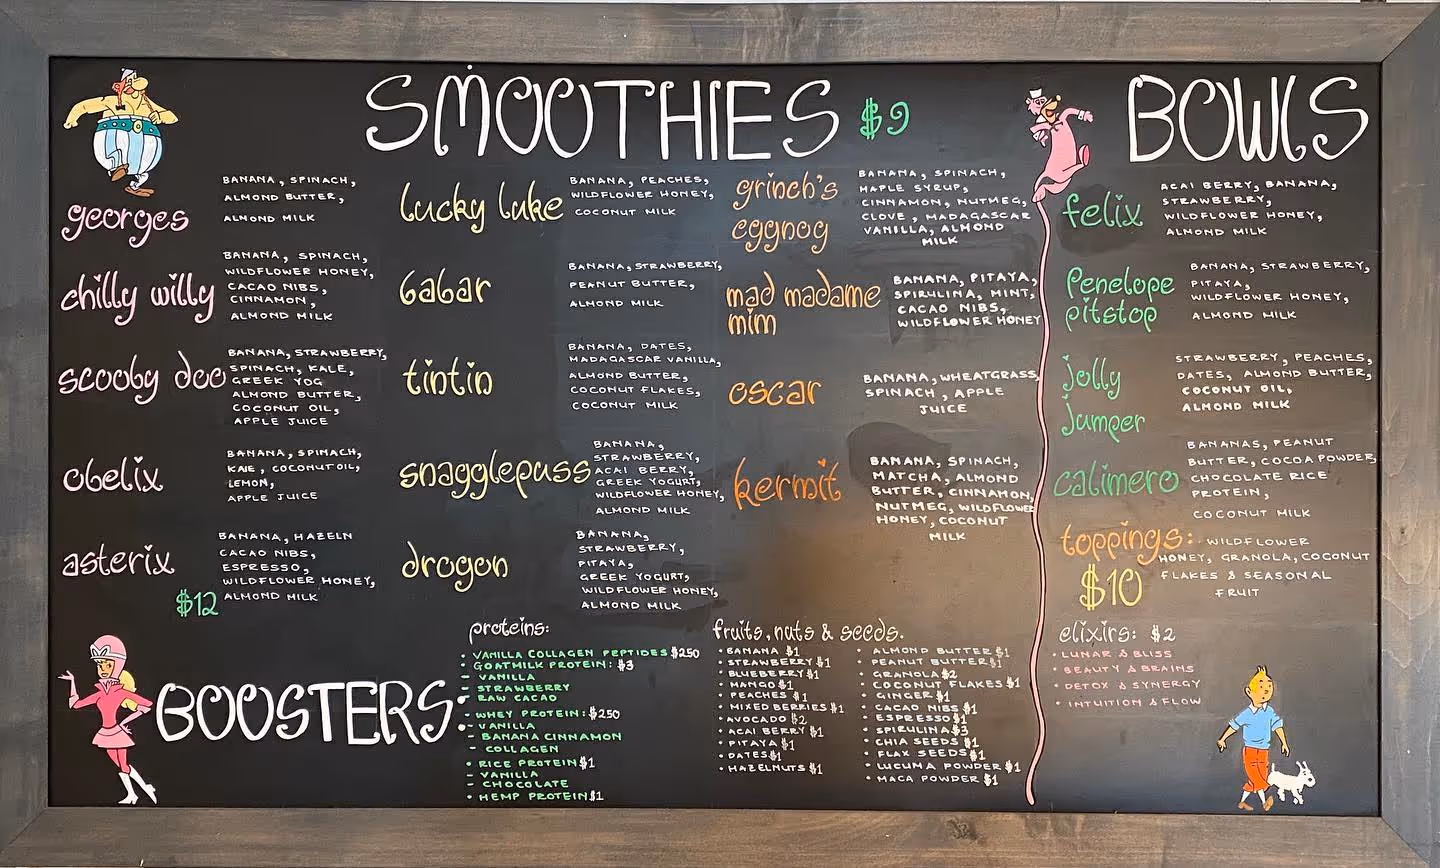 SMOOTHIES $9
georges
BANANA, SPINACH,
ALMOND BUTTER,
ALMOND MILK
chilly willy
BANANA, SPINACH,
WILDFLOWER HONEY,
CACAO NIBS,
CINNAMON,
ALMOND MILK
scooby doo
BANANA, STRAWBERRY,
SPINACH, KALE,
GREEK YOG
ALMOND BUTTER,
COCONUT OIL,
APPLE JUICE
obelix
BANANA, SPINACH,
KALE, COCONUT OIL,
LEMON,
APPLE JUICE
asterix
$12
BANANA, HAZELN
CACAO NIBS,
ESPRESSO,
WILDFLOWER HONEY,
ALMOND MILK
lucky luke
BANANA, PEACHES,
WILDFLOWER HONEY,
COCONUT MILK
babar
BANANA, STRAWBERRY,
PEANUT BUTTER,
ALMOND MILK
tintin
BANANA, DATES,
MADAGASCAR VANILLA,
ALMOND BUTTER,
COCONUT FLAKES,
COCONUT MILK
snagglepuss
BANANA,
STRAWBERRY,
ACAI BERRY,
GREEK YOGURT,
WILDFLOWER HONEY,
ALMOND MILK
drogon
BANANA,
STRAWBERRY,
PITAYA,
GREEK YOGURT,
WILDFLOWER HONEY,
ALMOND MILK
grinch's
eggnog
BANANA, SPINACH,
MAPLE SYRUP,
CINNAMON, NUTMEG,
CLOVE, MADAGASCAR
VANILLA, ALMOND
MILK
mad madame
mim
BANANA, PITAYA,
SPIRULINA, MINT,
CACAO NIBS,
WILDFLOWER HONEY
oscar
BANANA, WHEATGRASS
SPINACH, APPLE
JUICE
kermit
BANANA, SPINACH,
MATCHA, ALMOND
BUTTER, CINNAMON,
NUTMEG, WILDFLOWER
HONEY, COCONUT
MILK
BOWLS
felix
ACAI BERRY, BANANA,
STRAWBERRY,
WILDFLOWER HONEY,
ALMOND MILK
Penelope
pitstop
BANANA, STRAWBERRY,
PITAYA,
WILDFLOWER HONEY,
ALMOND MILK
jolly
jumper
STRAWBERRY, PEACHES,
DATES, ALMOND BUTTER,
COCONUT OIL,
ALMOND MILK
calimero
BANANAS, PEANUT
BUTTER, COCOA POWDER,
CHOCOLATE RICE
PROTEIN,
COCONUT MILK
toppings: WILDFLOWER
HONEY, GRANOLA, COCONUT
FLAKES & SEASONAL
FRUIT
$10
BOOSTERS:
proteins:
• VANILLA COLLAGEN PEPTIDES $250
• GOATMILK PROTEIN: $3
- VANILLA
- STRAWBERRY
- RAW CACAO
• WHEY PROTEIN: $250
- VANILLA
- BANANA CINNAMON
- COLLAGEN
• RICE PROTEIN $1
- VANILLA
- CHOCOLATE
• HEMP PROTEIN $1
fruits, nuts & seeds.
• BANANA $1
• STRAWBERRY $1
• BLUEBERRY $1
• MANGO $1
• PEACHES $1
• MIXED BERRIES $1
• AVOCADO $2
• ACAI BERRY $1
• PITAYA $1
• DATES $1
• HAZELNUTS $1
• ALMOND BUTTER $1
• PEANUT BUTTER $1
• GRANOLA $2
• COCONUT FLAKES $1
• GINGER $1
• CACAO NIBS $1
• ESPRESSO $1
• SPIRULINA $3
• CHIA SEEDS $1
• FLAX SEEDS $1
• LUCUMA POWDER $1
• MACA POWDER $1
elixirs: $2
• LUNAR & BLISS
• BEAUTY & BRAINS
• DETOX & SYNERGY
• INTUITION & FLOW